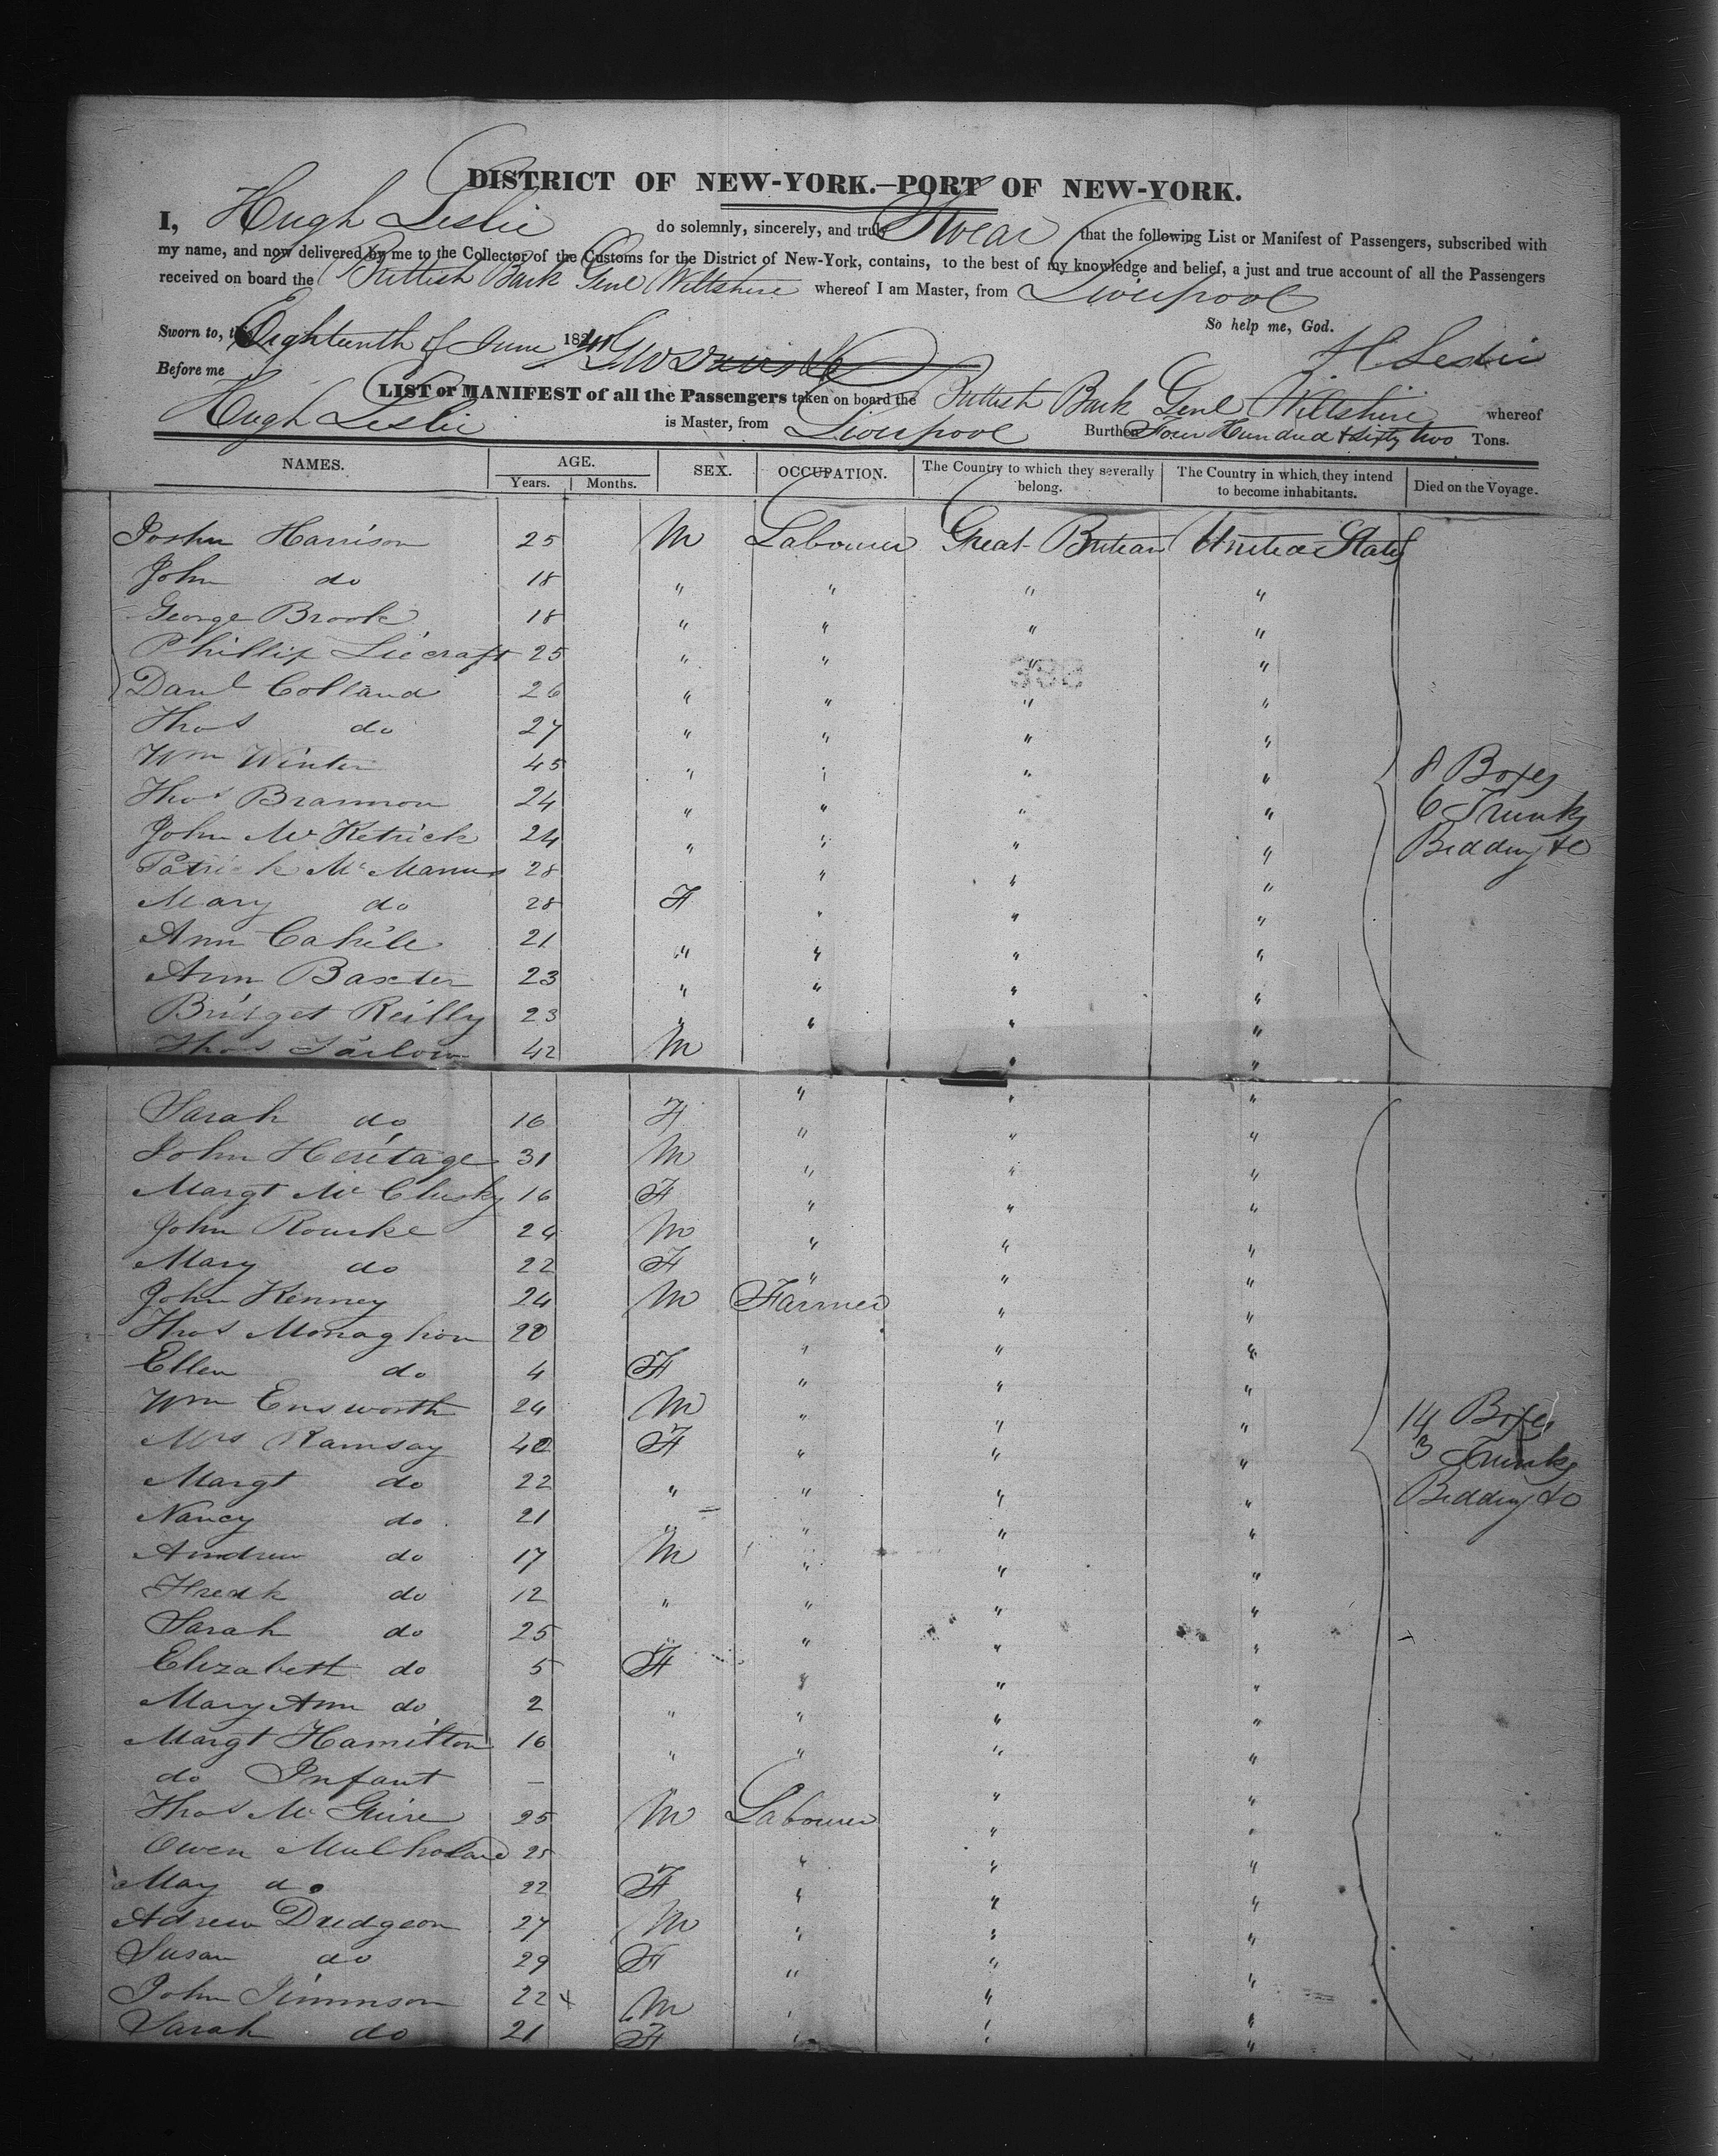 DISTRICT OF NEW-YORK.—PORT OF NEW-YORK.
I, Hugh Leslie do solemnly, sincerely, and truly Swear that the following List or Manifest of Passengers, subscribed with
my name, and now delivered by me to the Collector of the Customs for the District of New-York, contains, to the best of my knowledge and belief, a just and true account of all the Passengers
received on board the British Bark Genl Wiltshire whereof I am Master, from Liverpool
So help me, God.
Sworn to, this Eighteenth of June 1841 H Leslie
Before me
LIST or MANIFEST of all the Passengers taken on board the British Bark Genl Wiltshire whereof
Hugh Leslie is Master, from Liverpool Burthen Four Hundred & Sixty two Tons.
NAMES. AGE. Years. Months. SEX. OCCUPATION. The Country to which they severally belong. The Country in which they intend to become inhabitants. Died on the Voyage.
Harrison 25 M Labourer Great Britian United States
John do 18 " " " "
George Brook 18 " " " "
Phillip 25 " " " "
Danl Colland 26 " " " "
Thos do 27 " " " "
Wm Winter 45 " " " " 8 Boxes
Thos Brannon 24 " " " " 6 Trunks
John McKetrick 24 " " " " Bedding &c
Patrick McManus 28 " " "
Mary do 28 F " " "
Ann Cahile 21 " " " "
Ann Baxter 23 " " " "
Bridget Reilly 23 " " " "
Thos 42 M " "
Sarah do 16 F " " "
John Heritage 31 M " " "
Margt McClusky 16 F " " "
John Rourke 24 M " " "
Mary do 22 F " " "
John Kenney 24 M Farmer " "
Thos Monaghon 20 " " "
Ellen do 4 F " " "
Wm Ensworth 24 M " " " 14 Boxes
Mrs Ramsay 40 F " " " 3 Trunks
Margt do 22 " " " " Bedding &c
Nancy do 21 " " " "
Andrew do 17 M " " "
Fredk do 12 " " " "
Sarah do 25 " " " "
Elizabeth do 5 F " " "
Mary Ann do 2 " " " "
Margt Hamilton 16 " " " "
do Infant — " " "
Thos McGuire 25 M Labourer " "
Owen Mulholand 25 " " "
May do 22 F " " "
Adrew Dudgeon 27 M " " "
Susan do 29 F " " "
John Jimmson 22 x M " " "
Sarah do 21 F " " "